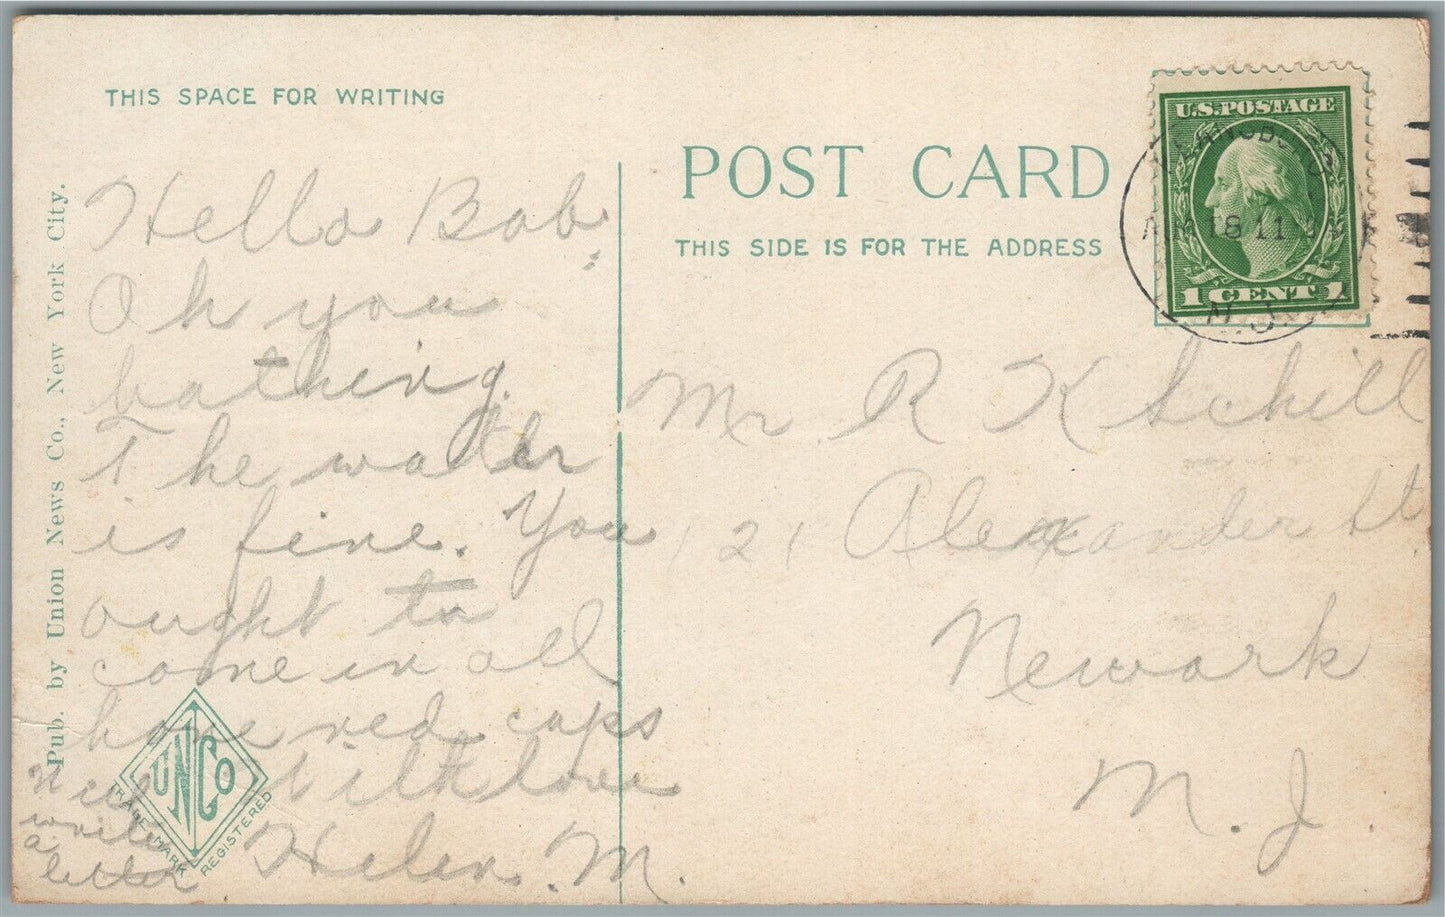 THIS SPACE FOR WRITING
Hello Bob:
Oh you
bathing.
The water
is fine. You
ought to
come in all
have red caps
With love
Helen. M.
Will
write
a
letter
Pub. by Union News Co., New York City.
UNCo
TRADE MARK
REGISTERED
POST CARD
THIS SIDE IS FOR THE ADDRESS
U.S. POSTAGE
1 CENT 1
18 11
N.J.
Mr R K Schill
121 Alexander St
Newark
N. J